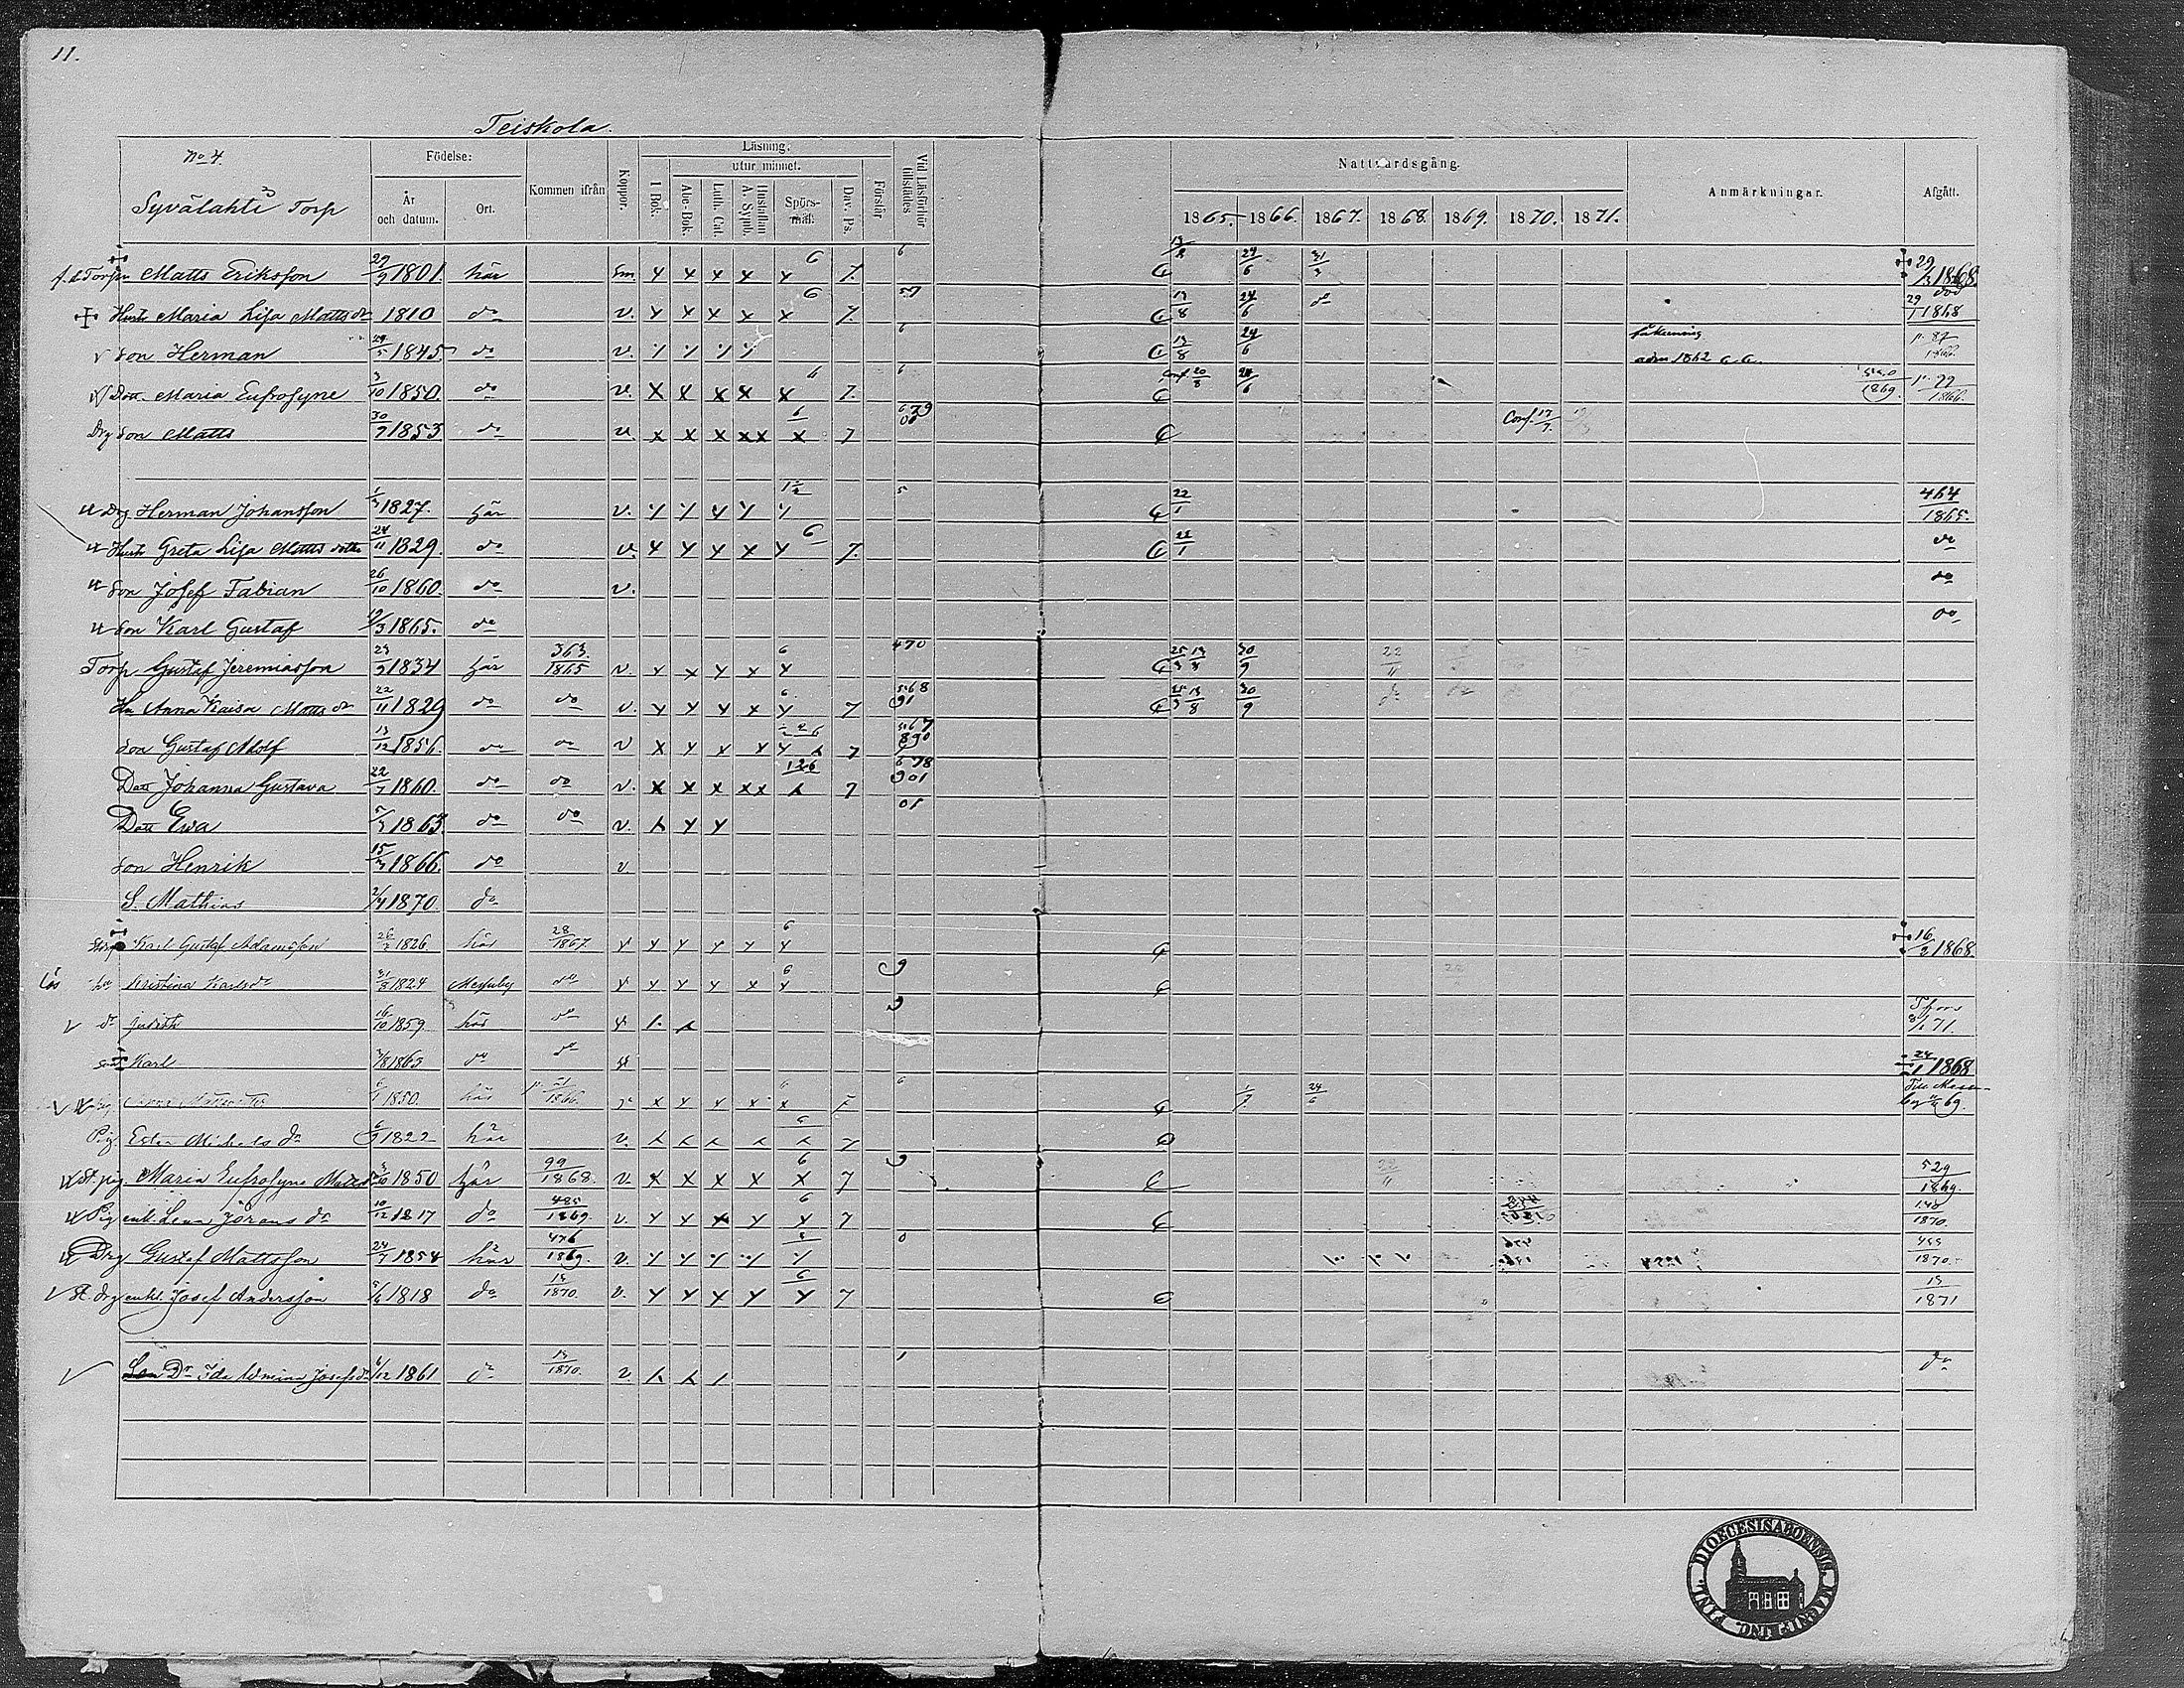 11.
Teiskola.
No 4.
Syvälahti Torp
Födelse:
År och datum.
Ort.
Kommen ifrån
Koppor.
Läsning.
utur minnet.
I Bok.
Abc-Bok.
Luth. Cat.
Hustaflan A. Symb.
Spörs-mål.
Dav. Ps.
Förstår
Vid Läsförhör tillstädes
Nattvardsgång.
1865. 1866. 1867. 1868. 1869. 1870. 1871.
Anmärkningar.
Afgått.
f. d. Torpn Matts Eriksson 29/9 1801. här Sm. 6 7. 6 13/8 24/6 31/3 29/3 1868.
Hustr Maria Lisa Matts dr 1810 do v. 6 7. 57 13/8 24/6 do död 29/1 1868
v Son Herman 29/5 1845 do v. 6 13/8 24/6 adm 1862 p. 87 1866.
Dott. Maria Eufrosyne 3/10 1850 do v. 6 7. 6 Conf. 20/8 24/6 550 1869 p. 99 1866.
Drg Son Matts 30/7 1853 do v. 6 7 Conf. 17/7.
Drg Herman Johansson 1/3 1827. här v. 5 22/1 464 1865.
Hustr Greta Lisa Matts dotter 24/11 1829. do v. 6 7. 22/1 do
Son Josef Fabian 26/10 1860. do v. do
Son Karl Gustaf 19/3 1865. do do
Torp Gustaf Jeremiasson 23/9 1834 här 363. 1865 v. 6 470 25/3 13/8 30/9 22/11
Hu Anna Kaisa Matts dr 22/11 1829 do do v. 6. 7 568 91 25/3 13/8 30/9 do
Son Gustaf Adolf 13/12 1856. do do v 7 567 890
Dott Johanna Gustava 22/7 1860. do do v. 126 7 678 901
Dott Ewa 5/3 1863 do do v. 01
Son Henrik 15/3 1866. do v
S. Mathias 2/4 1870 do
Karl Gustaf Adamsson 26/2 1826. här 28 1867. 6 16/2 1868.
lös hu Kristina Karls dr 31/3 1824 Messuby do 6 9
v dr Judith 16/10 1859. här do 9 Tfors 8/1 71.
son Karl 3/8 1863 do do 24/1 1868
1850. här 21 1866. 6 7 6 1/7. 24/6 Till Messuby 69.
Pig. Ester Mikels dr 6/9 1822 här v. 6 7
St. pig. Maria Eufrosyne Matts dr 3/10 1850 här 99 1868. v. 6 7 9 22/11 529 1869.
Pig enk. Lena Jörans dr 10/12 1817 do 485 1869. v. 6 7 148 1870.
Drg Gustaf Mattsson 24/7 1854 här 476 1869. v. 0 455 1870.
v St. drg enkl. Josef Andersson 5/6 1818 do 15 1870. v. 6 7 15 1871
Dr Ida Josefs dr 6/12 1861 do 15 1870. v. 1 do
DIOECESIS ABOENSIS. MAGNI DUC. FINL.